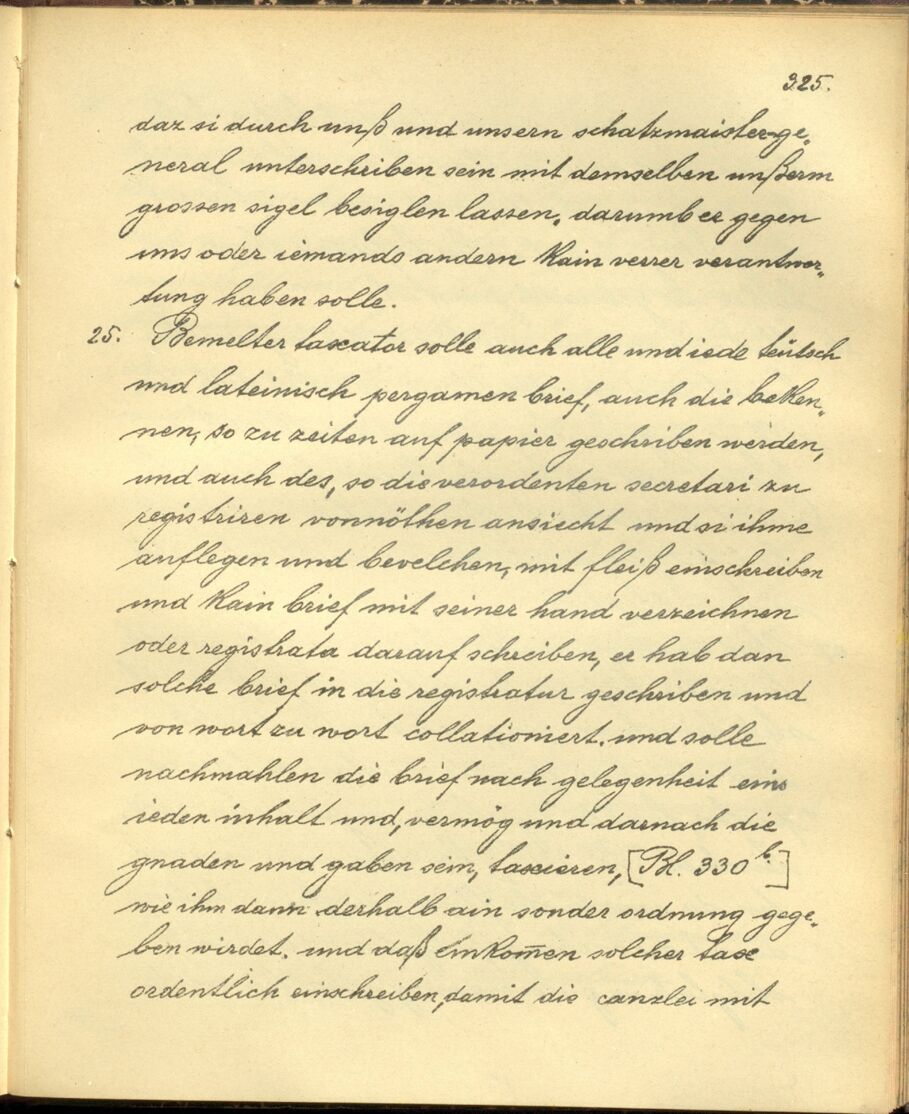 325.
daz si durch unß und unsern schatzmaister-ge„
neral unterschriben sein mit demselben unßerm
grossen sigel besiglen lassen, darumb er gegen
uns oder iemands andern kain verrer verantwor„
tung haben solle.
25. Bemelter taxator solle auch alle und iede teütsch
und lateinisch pergamen brief, auch die beken„
nen, so zu zeiten auf papier geschriben werden,
und auch des, so die verordenten secretari zu
registriren vonnöthen ansiecht und si ihme
auflegen und bevelchen, mit fleiß einschreiben
und kain brief mit seiner hand verzeichnen
oder registrata darauf schreiben, er hab dan
solche brief in die registratur geschriben und
von wort zu wort collationiert. und solle
nachmahlen die brief nach gelegenheit eins
ieden inhalt und, vermög und darnach die
gnaden und gaben sein, taxieren, [Bl. 330 b.]
wie ihm dann derhalb ain sonder ordnung gege„
ben wirdet. und daß einkom̅en solcher tax
ordentlich einschreiben, damit die canzlei mit